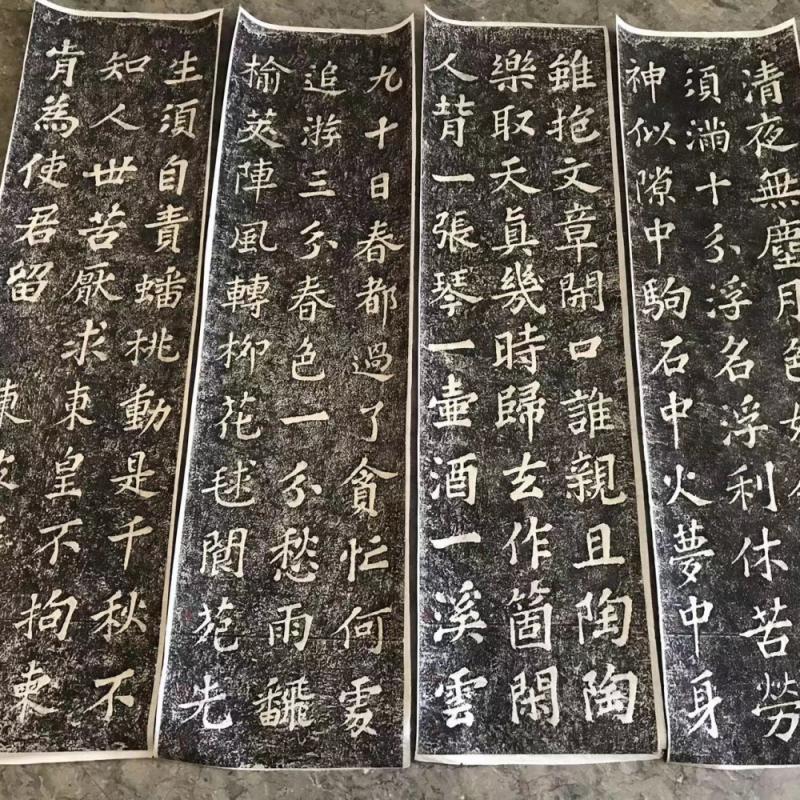 清夜無塵月色如
須滿十分浮名浮利休苦勞
神似隙中駒石中火夢中身
雖抱文章開口誰親且陶陶
樂取天真幾時歸去作箇閑
人背一張琴一壺酒一溪雲
九十日春都過了貪忙何處
追游三分春色一分愁雨飜
榆莢陣風轉柳花毬閬苑先
生須自責蟠桃動是千秋不
知人世苦厭求東皇不拘束
肯為使君留